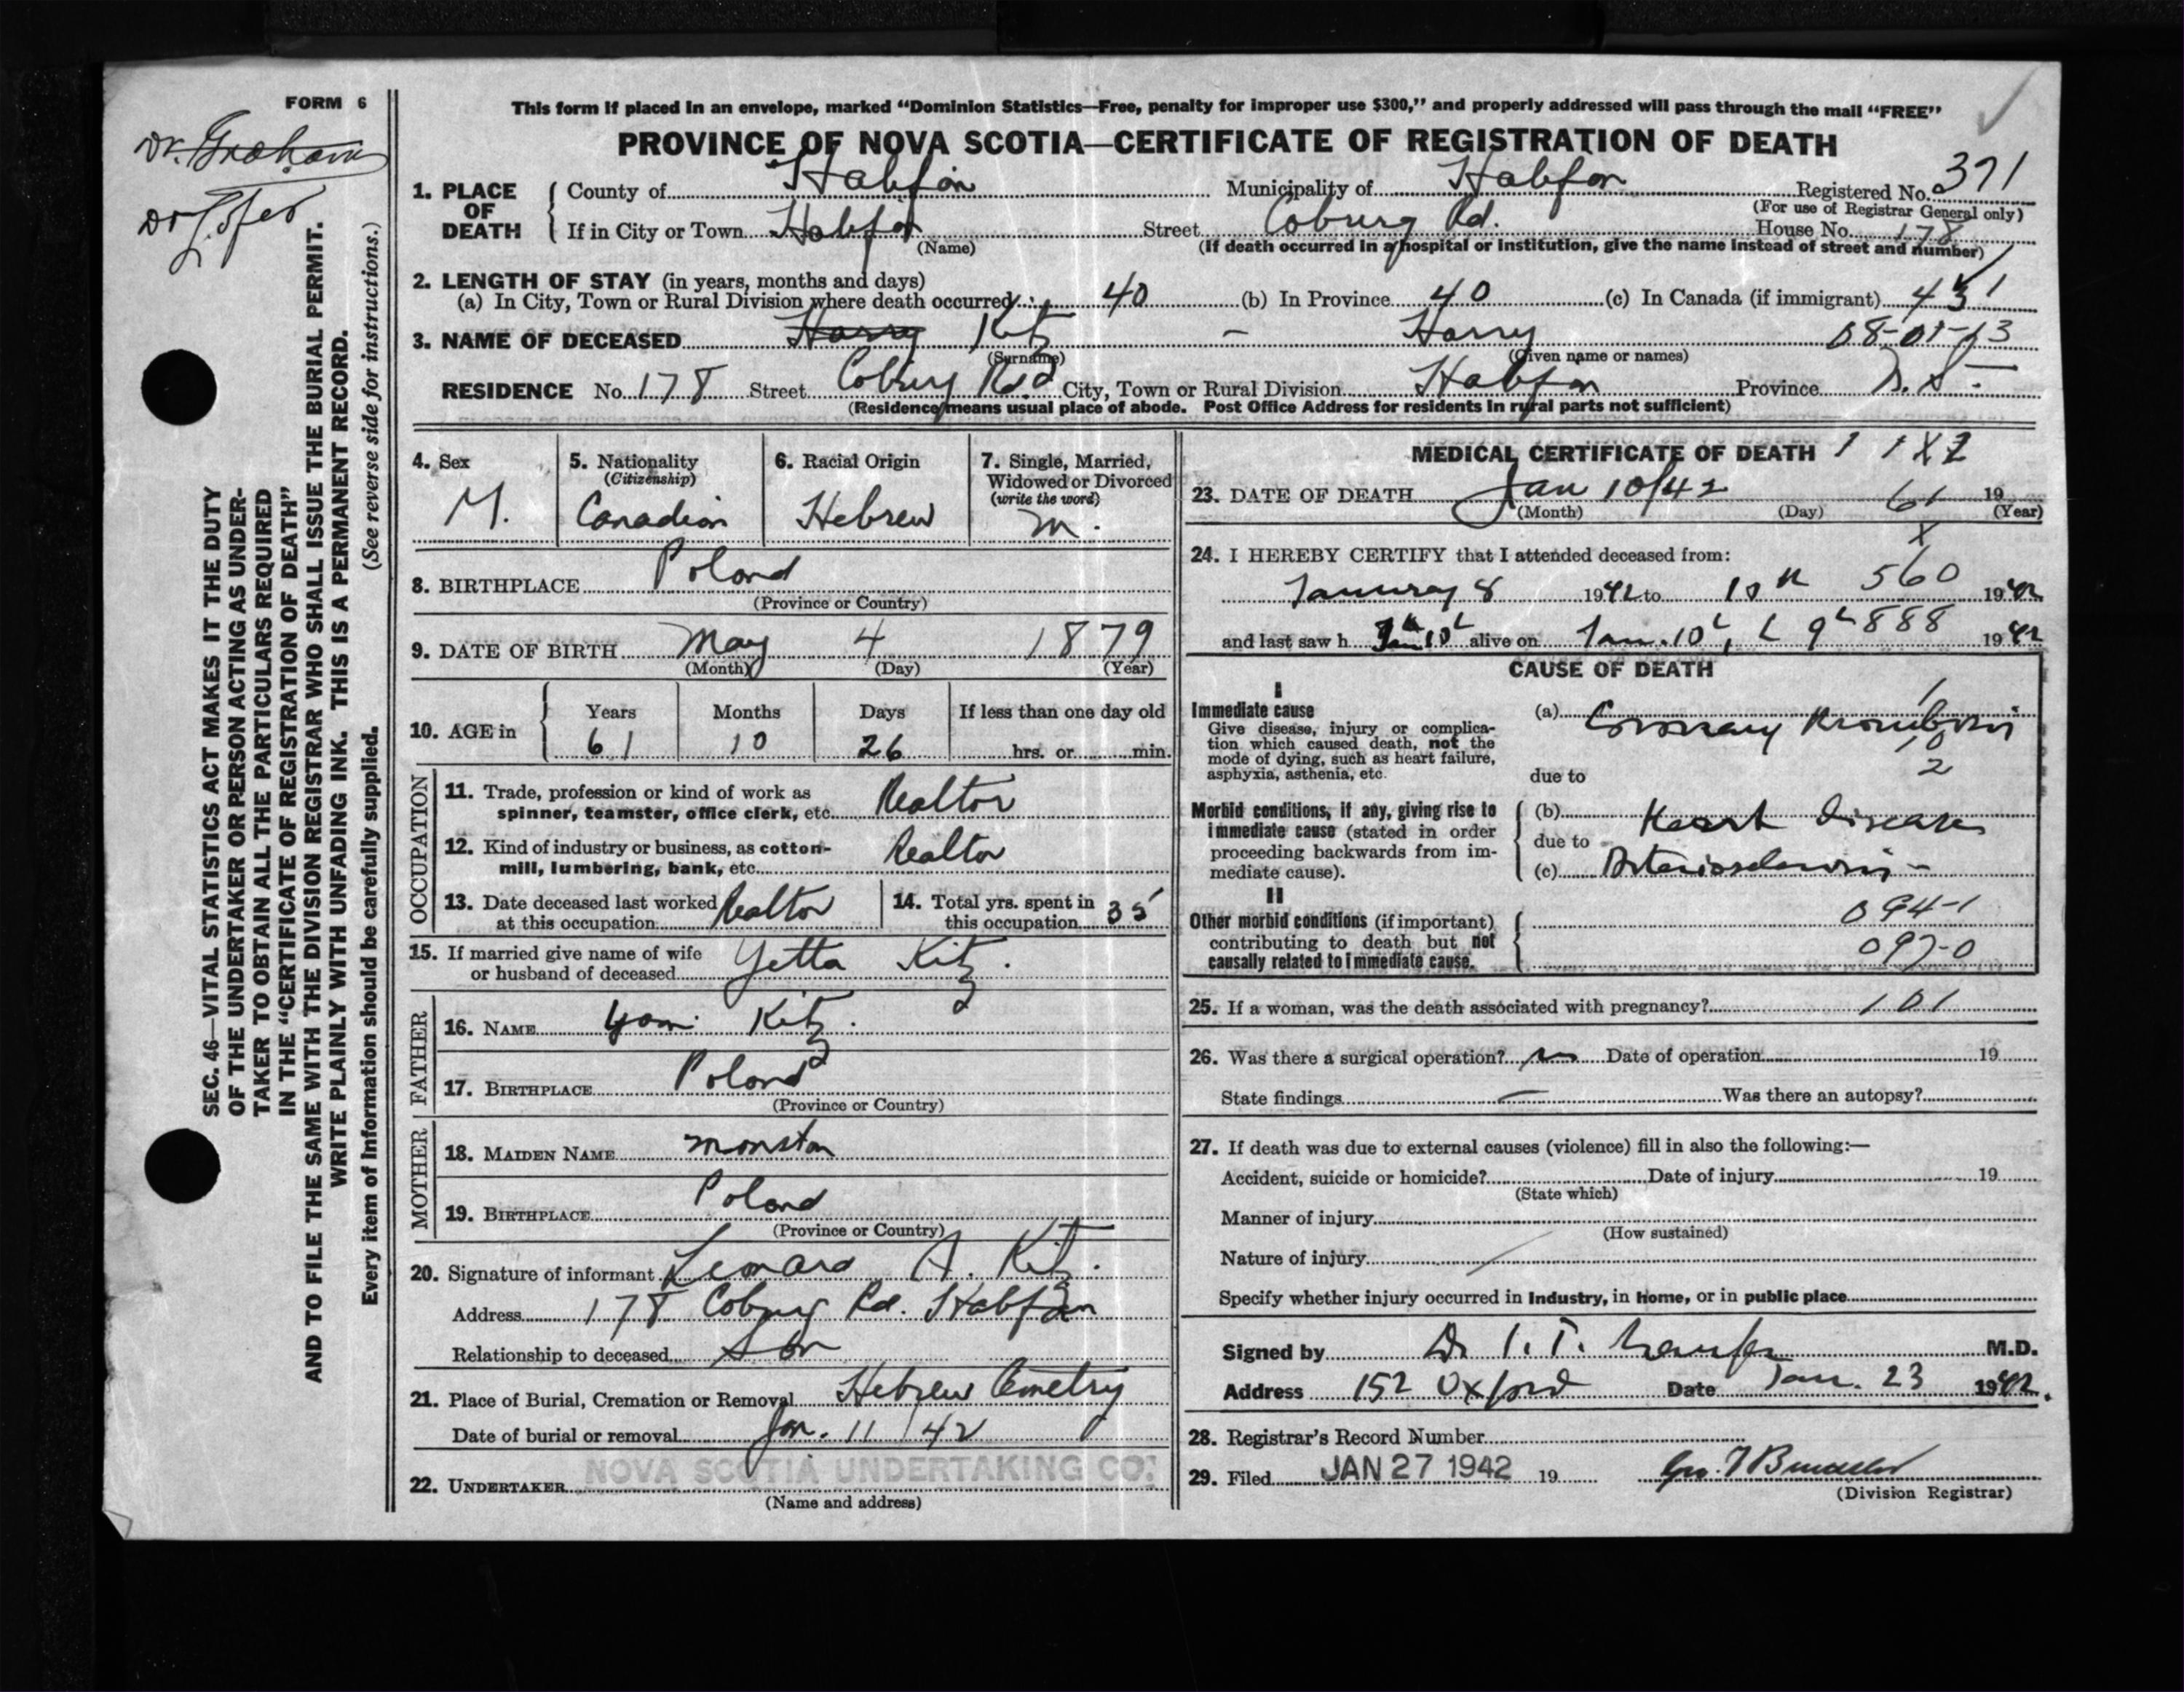 FORM 6
Dr. Graham
This form if placed in an envelope, marked “Dominion Statistics—Free, penalty for improper use $300,” and properly addressed will pass through the mail “FREE”
PROVINCE OF NOVA SCOTIA—CERTIFICATE OF REGISTRATION OF DEATH
1. PLACE OF DEATH
County of Halifax Municipality of Halifax Registered No. 371
(For use of Registrar General only)
If in City or Town Halifax Street Coburg Rd. House No. 178
(Name) (If death occurred in a hospital or institution, give the name instead of street and number)
2. LENGTH OF STAY (in years, months and days)
(a) In City, Town or Rural Division where death occurred 40 (b) In Province 40 (c) In Canada (if immigrant)
3. NAME OF DECEASED Harry Kitz – Harry
(Surname) (Given name or names)
RESIDENCE No. 178 Street Coburg Rd City, Town or Rural Division Halifax Province N.S.
(Residence means usual place of abode. Post Office Address for residents in rural parts not sufficient)
SEC. 46—VITAL STATISTICS ACT MAKES IT THE DUTY
OF THE UNDERTAKER OR PERSON ACTING AS UNDER-
TAKER TO OBTAIN ALL THE PARTICULARS REQUIRED
IN THE “CERTIFICATE OF REGISTRATION OF DEATH”
AND TO FILE THE SAME WITH THE DIVISION REGISTRAR WHO SHALL ISSUE THE BURIAL PERMIT.
WRITE PLAINLY WITH UNFADING INK. THIS IS A PERMANENT RECORD.
Every item of information should be carefully supplied. (See reverse side for instructions.)
4. Sex M.
5. Nationality (Citizenship) Canadian
6. Racial Origin Hebrew
7. Single, Married, Widowed or Divorced (write the word) M.
8. BIRTHPLACE Poland
(Province or Country)
9. DATE OF BIRTH May 4 1879
(Month) (Day) (Year)
10. AGE in Years Months Days If less than one day old
61 10 26 hrs. or min.
OCCUPATION
11. Trade, profession or kind of work as
spinner, teamster, office clerk, etc. Realtor
12. Kind of industry or business, as cotton-
mill, lumbering, bank, etc. Realtor
13. Date deceased last worked at this occupation Realtor
14. Total yrs. spent in this occupation 35
15. If married give name of wife
or husband of deceased Yetta Kitz.
FATHER
16. NAME Kitz.
17. BIRTHPLACE Poland
(Province or Country)
MOTHER
18. MAIDEN NAME
19. BIRTHPLACE Poland
(Province or Country)
20. Signature of informant Leonard A. Kitz.
Address 178 Coburg Rd. Halifax
Relationship to deceased Son
21. Place of Burial, Cremation or Removal Hebrew Cemetry
Date of burial or removal Jan. 11/42
22. UNDERTAKER NOVA SCOTIA UNDERTAKING CO.
(Name and address)
MEDICAL CERTIFICATE OF DEATH
23. DATE OF DEATH Jan 10/42 61 19
(Month) (Day) (Year)
X
24. I HEREBY CERTIFY that I attended deceased from:
January 8 1942 to 10th 560 1942
and last saw h alive on Jan. 10 888 1942
CAUSE OF DEATH
I
Immediate cause
Give disease, injury or complica-
tion which caused death, not the
mode of dying, such as heart failure,
asphyxia, asthenia, etc.
(a) Coronary Thrombosis
due to
Morbid conditions, if any, giving rise to
immediate cause (stated in order
proceeding backwards from im-
mediate cause).
(b) Heart Disease
due to
(c) Arteriosclerosis –
II
Other morbid conditions (if important)
contributing to death but not
causally related to immediate cause.
094-1
097-0
25. If a woman, was the death associated with pregnancy? 101
26. Was there a surgical operation? no Date of operation 19
State findings – Was there an autopsy?
27. If death was due to external causes (violence) fill in also the following:—
Accident, suicide or homicide? Date of injury 19
(State which)
Manner of injury
(How sustained)
Nature of injury
Specify whether injury occurred in industry, in home, or in public place
Signed by Dr. M.D.
Address 152 Oxford Date Jan. 23 1942.
28. Registrar's Record Number
29. Filed JAN 27 1942 19
(Division Registrar)